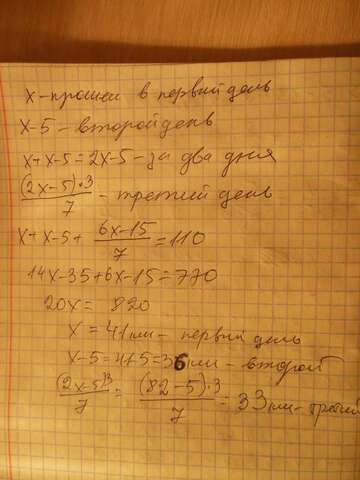 x-прошел в первый день
x-5-второй день
x+x-5=2x-5-за два дня
(2x-5)·3/7 - третий день
x+x-5+ 6x-15/7 =110
14x-35+6x-15=770
20x= 820
x=41км- первый день
x-5=41-5=36км-второй
(2x-5)3/7 = (82-5)·3/7 =33км-третий